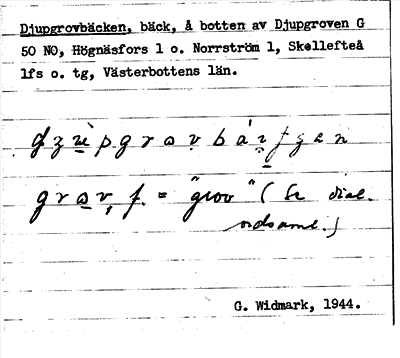 Djupgrovbäcken, bäck, å botten av Djupgroven G
50 NO, Högnäsfors 1 o. Norrström 1, Skellefteå
lfs o. tg, Västerbottens län.
grov, f. = "grov" (Se dial.
ordsaml.)
G. Widmark, 1944.